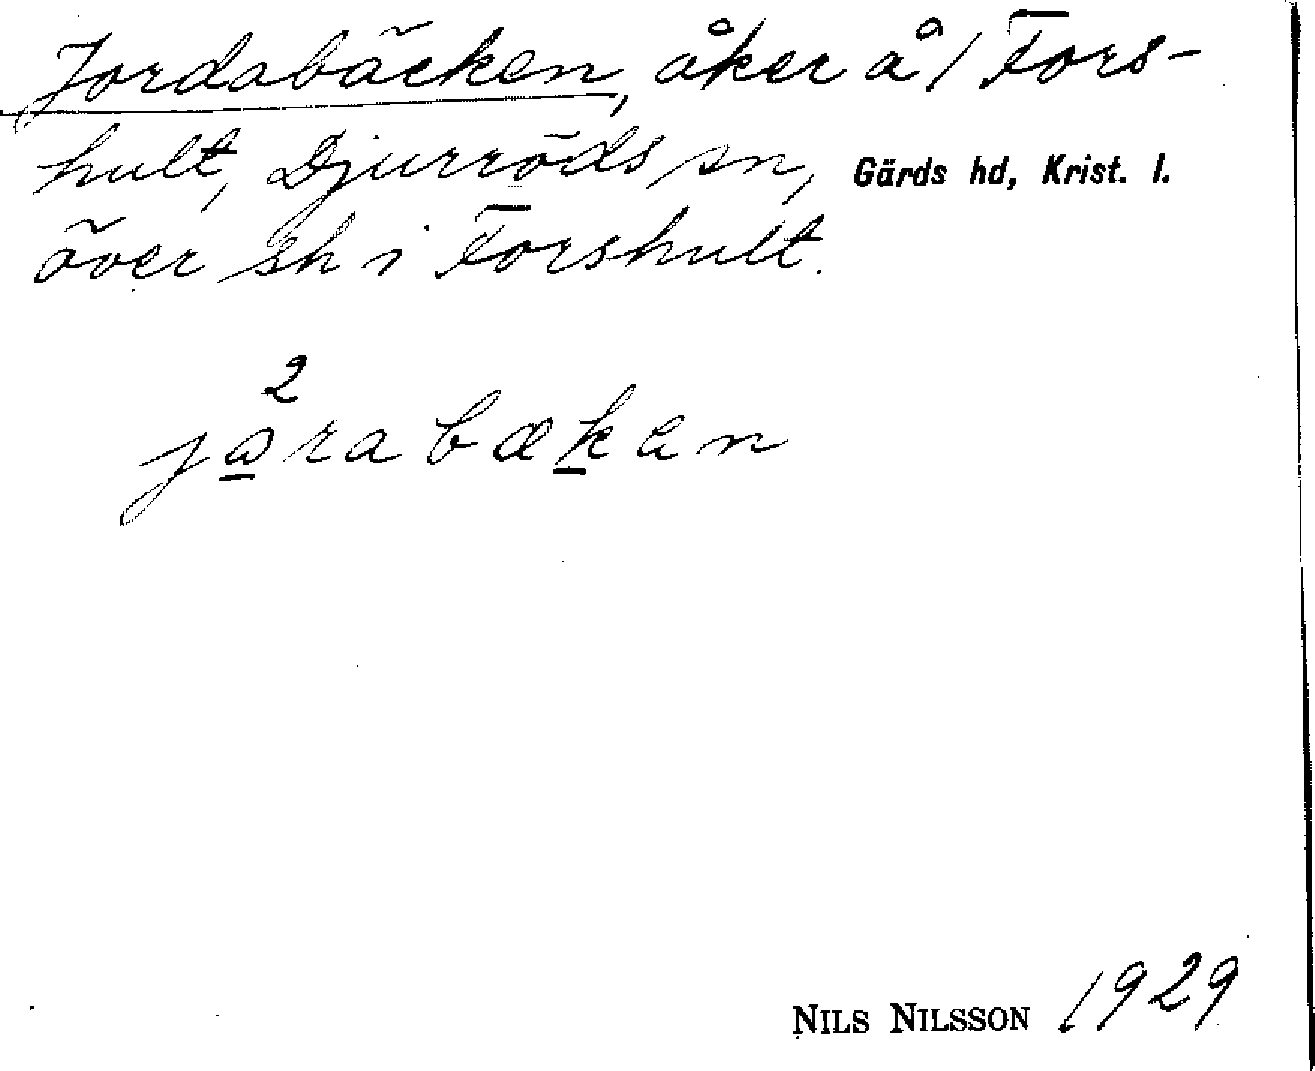 Jordabäcken, åker å 1 Fors-
hult, Djurröds sn, Gärds hd, Krist. l.
över sh i Forshult.
2
jɷrabækan
NILS NILSSON 1929